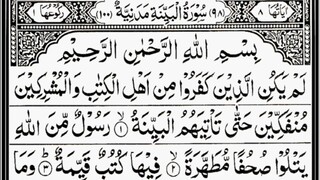 اٰیَاتُهَا ٨ (٩٨) سُوْرَةُ الْبَيِّنَةِ مَدَنِيَّةٌ (١٠٠) رُكُوْعُهَا ١
بِسْمِ اللّٰهِ الرَّحْمٰنِ الرَّحِيْمِ
لَمْ يَكُنِ الَّذِيْنَ كَفَرُوْا مِنْ اَهْلِ الْكِتٰبِ وَالْمُشْرِكِيْنَ
مُنْفَكِّيْنَ حَتّٰى تَاْتِيَهُمُ الْبَيِّنَةُ ۙ﴿١﴾ رَسُوْلٌ مِّنَ اللّٰهِ
يَتْلُوْا صُحُفًا مُّطَهَّرَةً ۙ﴿٢﴾ فِيْهَا كُتُبٌ قَيِّمَةٌ ؕ﴿٣﴾ وَمَا